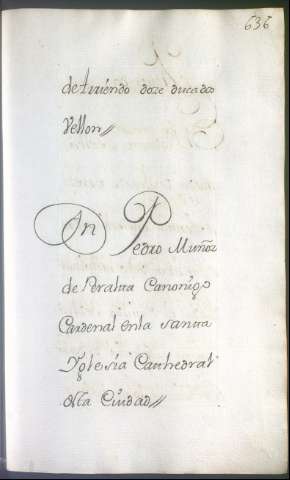 636
de atuiendo doze ducados
Vellon//
An Pedro Muñoz
de Peralta Canonigo
Cardenal en la santa
Yglesia Cathedral
desta Ciudad//